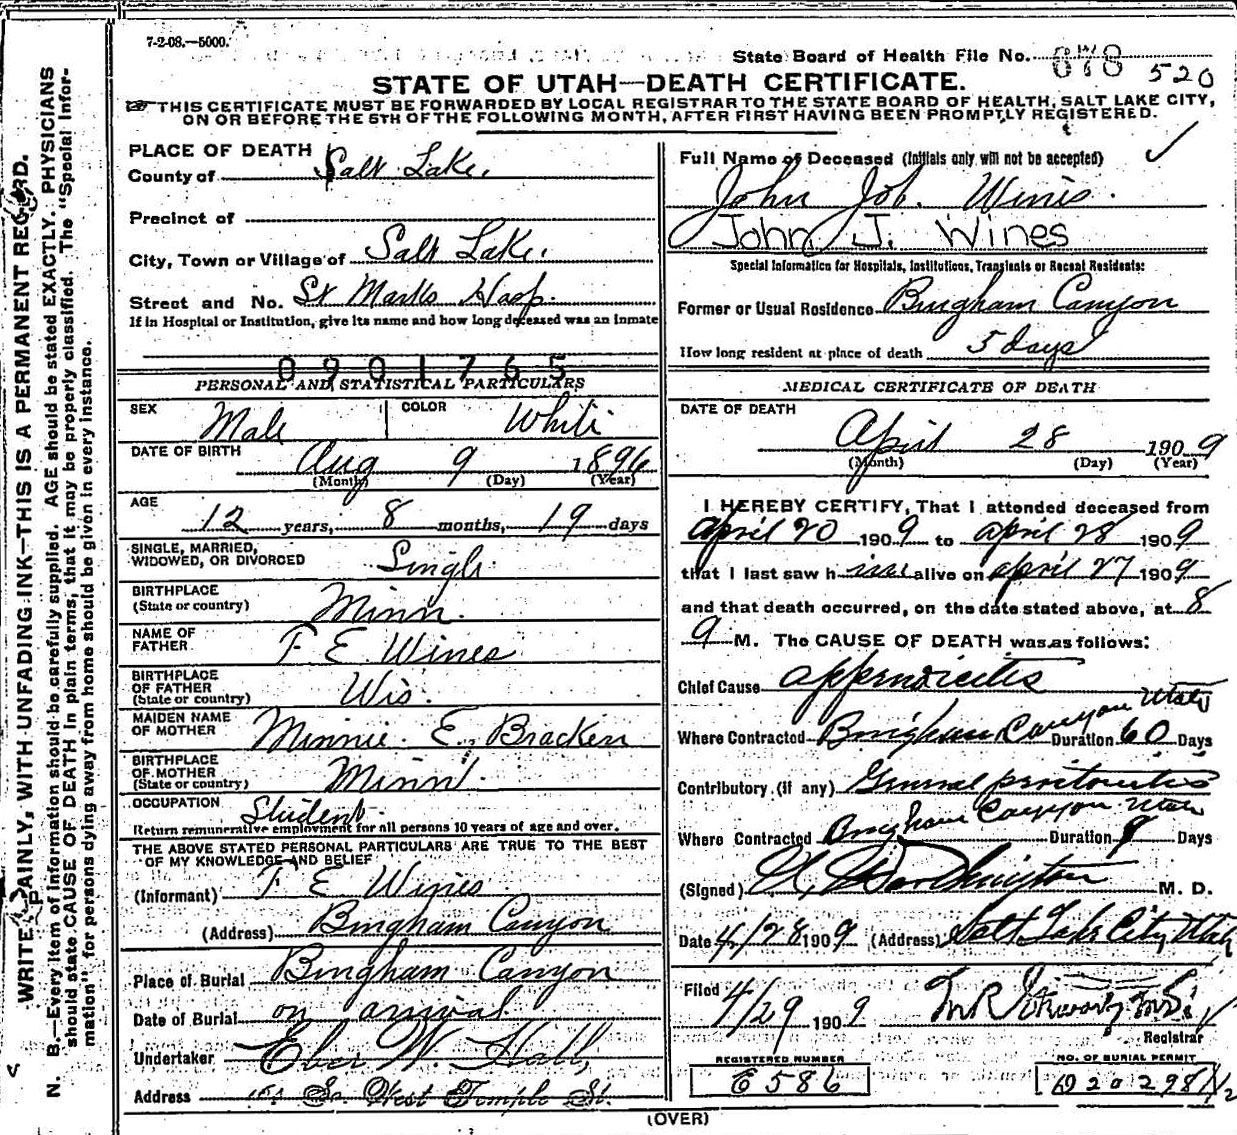 7-2-08.—5000.
State Board of Health File No. 878 520
STATE OF UTAH—DEATH CERTIFICATE.
THIS CERTIFICATE MUST BE FORWARDED BY LOCAL REGISTRAR TO THE STATE BOARD OF HEALTH, SALT LAKE CITY,
ON OR BEFORE THE 5TH OF THE FOLLOWING MONTH, AFTER FIRST HAVING BEEN PROMPTLY REGISTERED.
WRITE PLAINLY, WITH UNFADING INK—THIS IS A PERMANENT RECORD.
N. B.—Every item of information should be carefully supplied. AGE should be stated EXACTLY. PHYSICIANS
should state CAUSE OF DEATH in plain terms, that it may be properly classified. The "Special Infor-
mation" for persons dying away from home should be given in every instance.
PLACE OF DEATH
County of Salt Lake.
Precinct of
City, Town or Village of Salt Lake.
Street and No. St Marks Hosp.
If in Hospital or Institution, give its name and how long deceased was an inmate
0901765
PERSONAL AND STATISTICAL PARTICULARS
SEX Male COLOR White
DATE OF BIRTH Aug 9 1896
(Month) (Day) (Year)
AGE 12 years, 8 months, 19 days
SINGLE, MARRIED,
WIDOWED, OR DIVORCED Single
BIRTHPLACE
(State or country) Minn.
NAME OF
FATHER F E Wines
BIRTHPLACE
OF FATHER
(State or country) Wis.
MAIDEN NAME
OF MOTHER Minnie E. Bracken
BIRTHPLACE
OF MOTHER
(State or country) Minn.
OCCUPATION Student
Return remunerative employment for all persons 10 years of age and over.
THE ABOVE STATED PERSONAL PARTICULARS ARE TRUE TO THE BEST
OF MY KNOWLEDGE AND BELIEF
(Informant) F E Wines
(Address) Bingham Canyon
Place of Burial Bingham Canyon
Date of Burial on arrival
Undertaker Eber W. Hall,
Address So West Temple St.
Full Name of Deceased (Initials only will not be accepted)
John Job. Wines.
John J. Wines
Special Information for Hospitals, Institutions, Transients or Recent Residents:
Former or Usual Residence Bingham Canyon
How long resident at place of death 5 days
MEDICAL CERTIFICATE OF DEATH
DATE OF DEATH
April 28 1909
(Month) (Day) (Year)
I HEREBY CERTIFY, That I attended deceased from
April 20 1909 to April 28 1909
that I last saw him alive on April 27 1909
and that death occurred, on the date stated above, at 8
9 M. The CAUSE OF DEATH was as follows:
Chief Cause appendicitis
Where Contracted Bingham Canyon Utah Duration 60 Days
Contributory (if any) General peritonitis
Where Contracted Bingham Canyon Utah Duration 9 Days
(Signed) Worthington M. D.
Date 4/28 1909 (Address) Salt Lake City Utah
Filed
4/29 1909
Registrar
REGISTERED NUMBER
E586
NO. OF BURIAL PERMIT
(OVER)